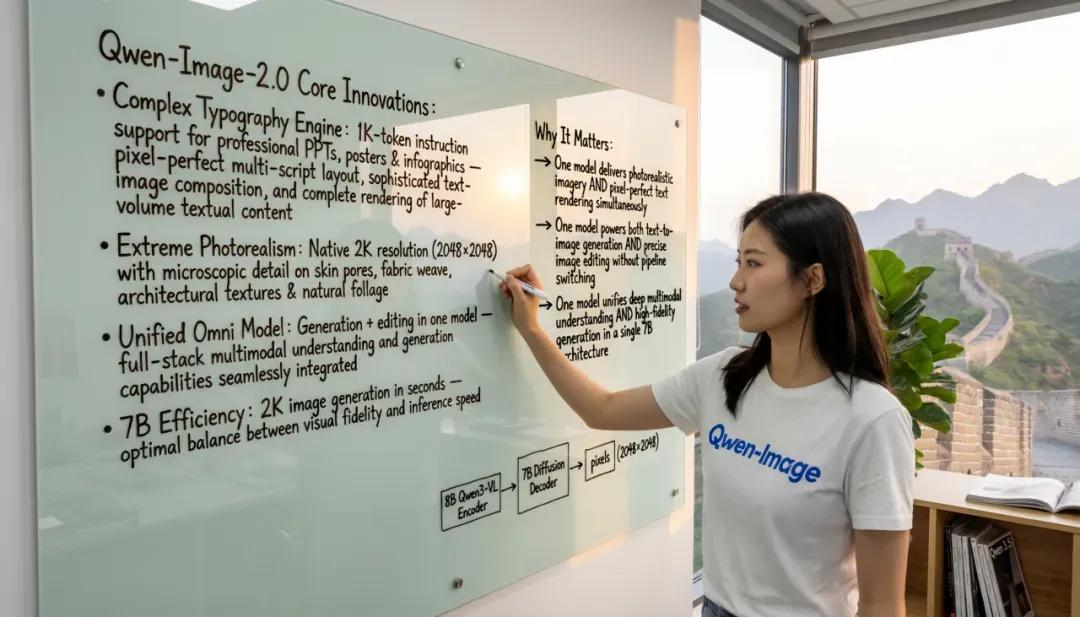 Qwen-Image-2.0 Core Innovations:
• Complex Typography Engine: 1K-token instruction
support for professional PPTs, posters & infographics —
pixel-perfect multi-script layout, sophisticated text-
image composition, and complete rendering of large-
volume textual content
• Extreme Photorealism: Native 2K resolution (2048×2048)
with microscopic detail on skin pores, fabric weave,
architectural textures & natural follage
• Unified Omni Model: Generation + editing in one model —
full-stack multimodal understanding and generation
capabilities seamlessly integrated
• 7B Efficiency: 2K image generation in seconds —
optimal balance between visual fidelity and inference speed
Why It Matters:
→ One model delivers photorealistic
imagery AND pixel-perfect text
rendering simultaneously
→ One model powers both text-to-
image generation AND precise
image editing without pipeline
switching
→ One model unifies deep multimodal
understanding AND high-fidelity
generation in a single 7B
architecture
8B Qwen3-VL
Encoder
→
7B Diffusion
Decoder
→
pixels
(2048×2048)
Qwen-Image
Qwen 3.5